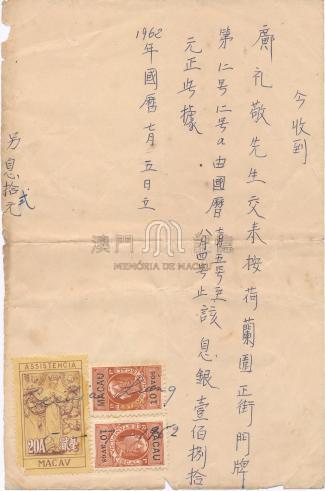 今收到
鄺礼敬先生交來按荷蘭園正街門牌
第仁号仁号a由國曆七月五号至八月四号止該息銀壹佰捌拾
元正此據
1962年國曆七月五日立
另息拾弍元
澳門
MEMÓRIA DE MACAU
ASSISTÊNCIA
20A
MACAU
MACAU
10
AVOS
MACAU
10
AVOS